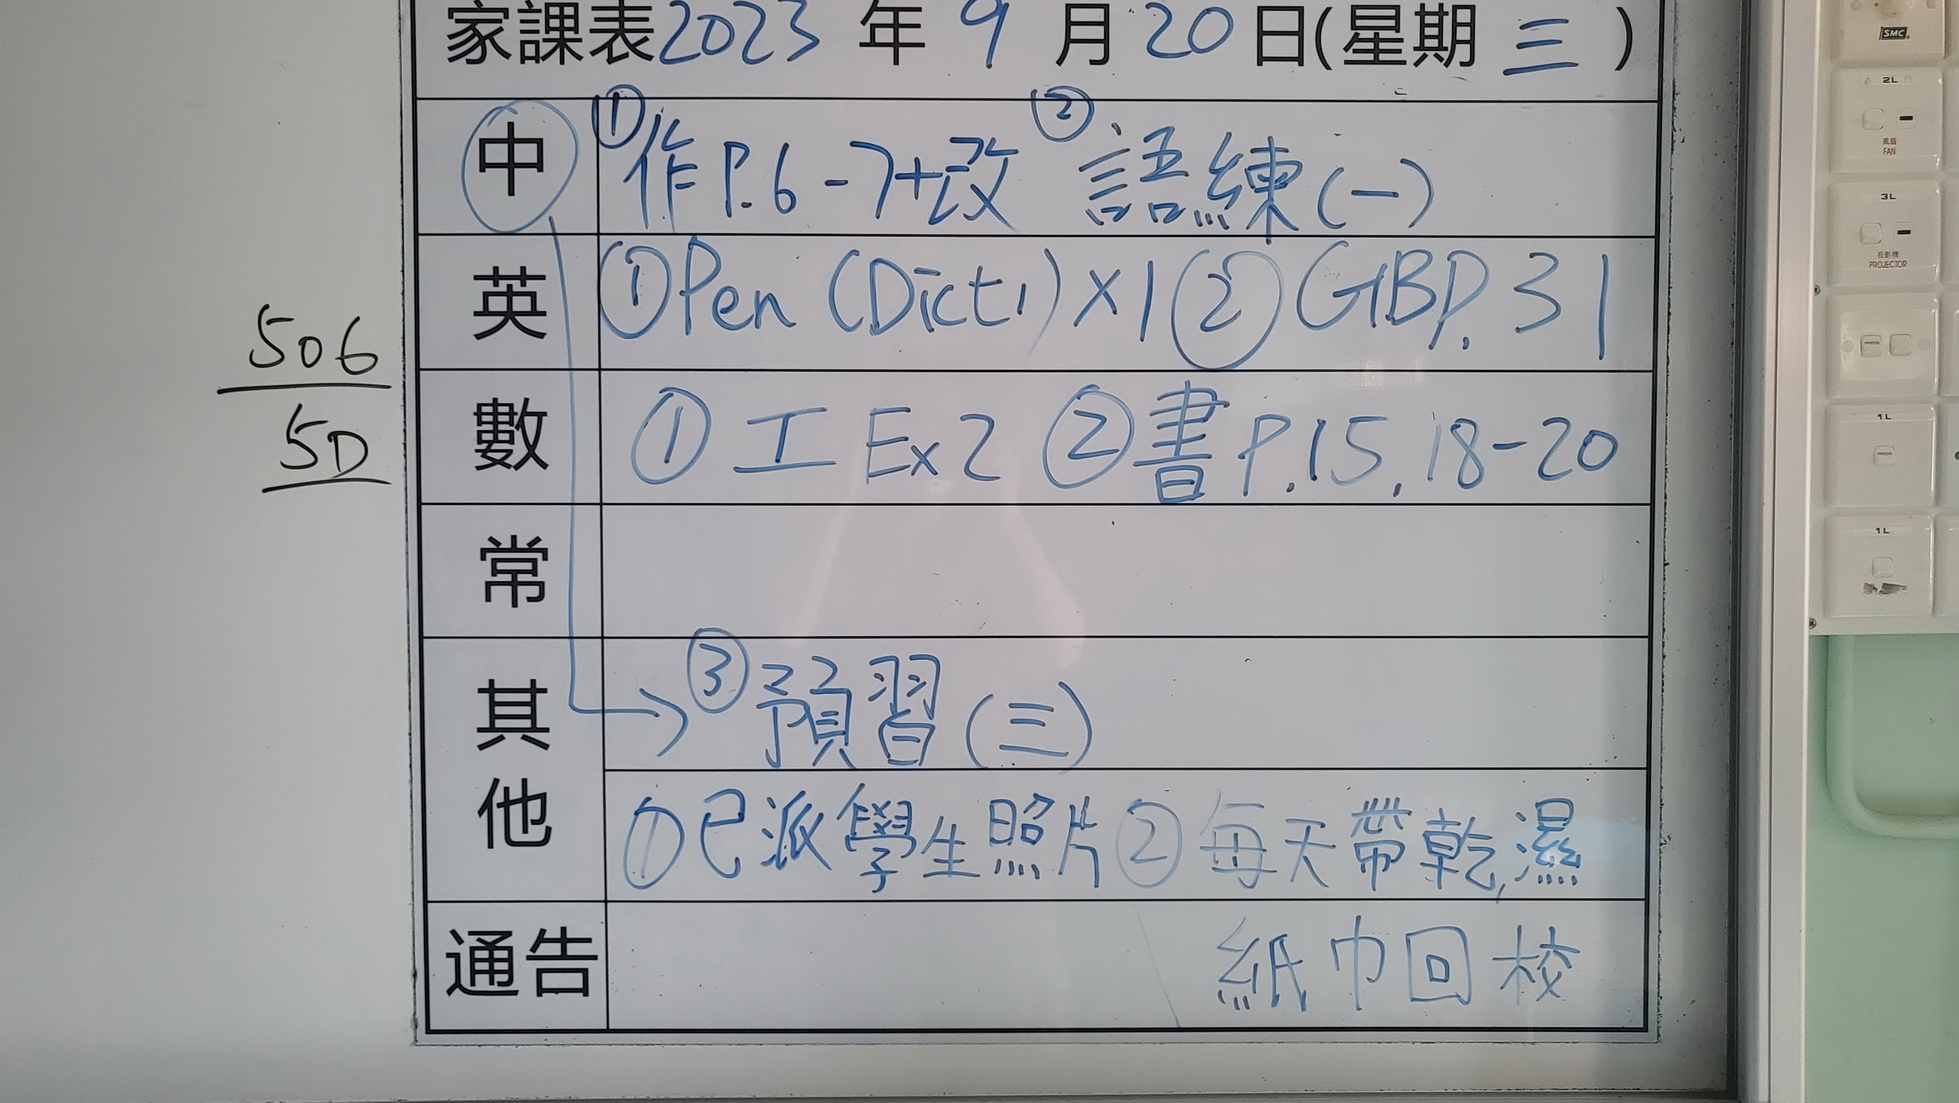 家課表2023年9月20日(星期三)
中 ①作P.6-7+改 ②語練(一)
英 ①Pen(Dict1)×1 ②GBP.31
506
5D
數 ①工 Ex2 ②書P.15,18-20
常
其他 ③預習(三)
①已派學生照片②每天帶乾,濕
紙巾回校
通告
SMC
2L
風扇
FAN
3L
投影機
PROJECTOR
1L
1L